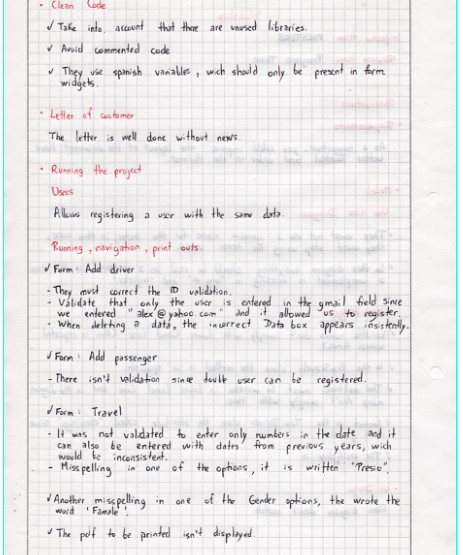 • Clean Code
✓ Take into account that there are unused libraries.
✓ Avoid commented code
✓ They use spanish variables, wich should only be present in form
widgets.
• Letter of customer
The letter is well done without news.
• Running the project
Users
Allows registering a user with the same data.
Running, navigation, print outs.
✓ Form: Add driver
- They must correct the ID validation.
- Validate that only the user is entered in the gmail field since
we entered "alex@yahoo.com" and it allowed us to register.
- When deleting a data, the incorrect Data box appears insistently.
✓ Form: Add passenger
- There isn't validation since double user can be registered.
✓ Form: Travel
- It was not validated to enter only numbers in the date and it
can also be entered with dates from previous years, wich
would be inconsistent.
- Misspelling in one of the options, it is written "Presio".
✓ Another misspelling in one of the Gender options, the wrote the
word 'Famale'.
✓ The pdf to be printed isn't displayed.